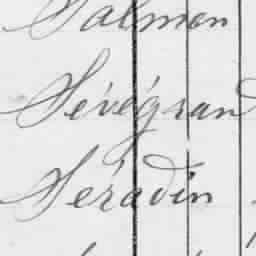 Salmon
Sévégrand
Séradin